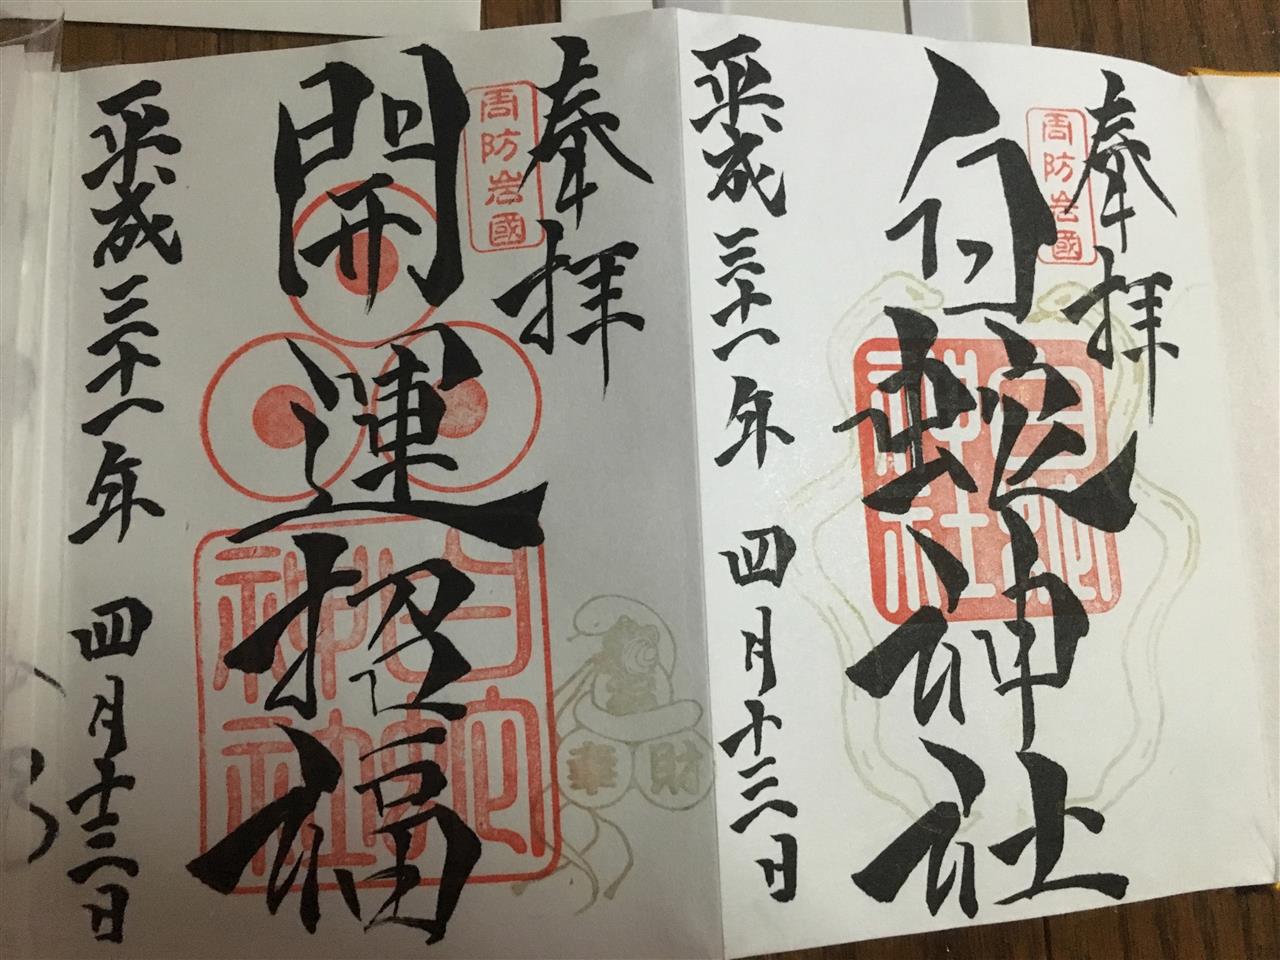 奉拝
周防岩國
白蛇神社
白蛇神社
平成三十一年 四月十三日
奉拝
周防岩國
開運招福
白蛇神社
財
平成三十一年 四月十三日